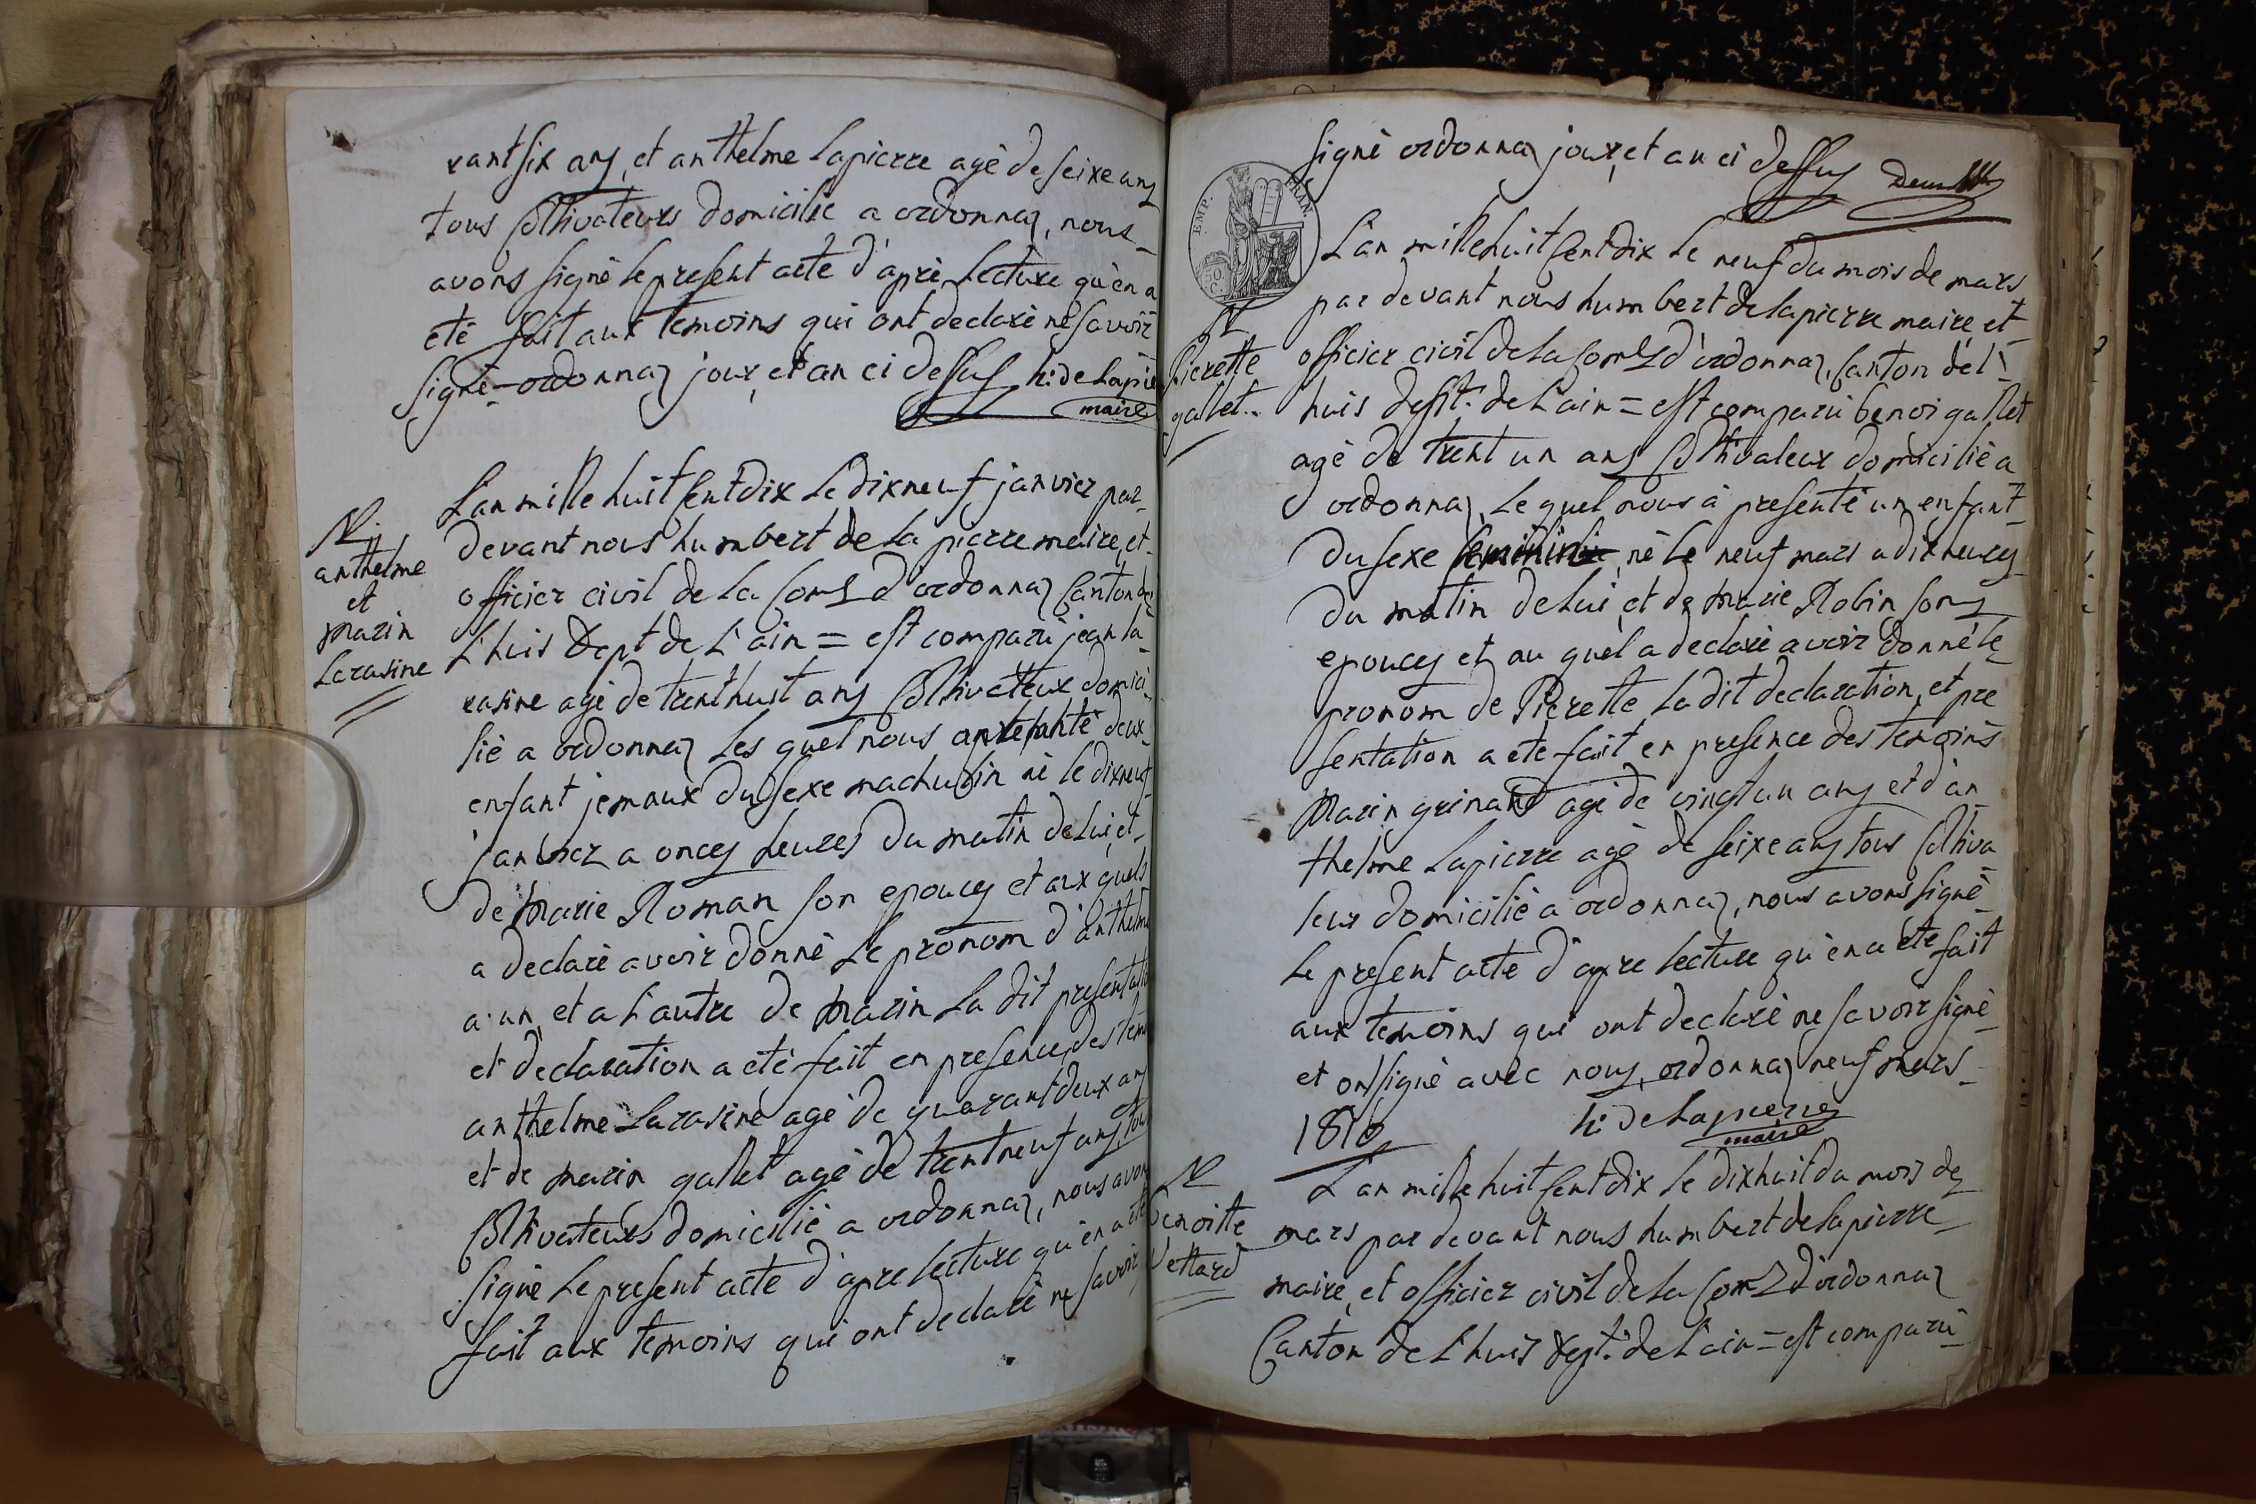 rant six ans, et anthelme Lapierre agé de seixe ans
tous Cölthivateurs domicilie a ordonnaz, nous
avons signè le present acte d'aprè Lecture qu'en a
etè fait aux temoins qui ont declarè ne savoir
signè ordonnaz jour, et an ci dessus h: de Lapie
maire
N.
anthelme
et
marin
Larasine
L'an mille huit sent dix Le dixneuf janvier par
devant nous humbert de la pierre maire, et
officier civil de La Com d'ordonnaz Canton de
L'huis Dept de L'ain = est comparu jean la
rasine agé de trent huit ans Colthivatteur domici
liè a ordonnaz Les quel nous a presantè deux
enfant jemaux du sexe machulin nè le dixneuf
janvier a onces heures du matin de Lui, et
de marie Roman son epouces et aux quels
a declarè avoir donnè Le pronom d'anthelme
a un, et a L'autre de marin La dit presentation
et declaration a etè fait en presence des tem
anthelme Larasine agé de quarant deux ans
et de marin gallet agè de trent neuf ans, tou
Colthivateurs domicilié a ordonnaz, nous avon
signè Le present acte d'apre lecture qu'en a etè
fait aux temoins qui ont declarè ne savoir
signè ordonnaz jour, et an ci dessus
EMP. FRAN.
50 C.
N
Pierette
gallet..
L'an mille huit sent dix Le neuf du mois de mars
par devant nous humbert de lapierre maire, et
officier civil de La Com d'ordonnaz, Canton de l'
huis dept. de L'ain = est comparu benoi gallet
agè de trent un ans Colthivateur domiciliè a
ordonnaz, Le quel nous à presentè un enfant
du sexe nè Le neuf mars a dix heures
du matin de Lui, et de marie Robin sons
epouces et au quel a declarè avoir donnè le
pronom de Pierette La dit declaration, et pre
sentation a ete fait en presence des temoins
marin grinand agè de vingt un ans et d'an
thelme Lapierre agè de seixe ans tous Colthiva
teur domiciliè a ordonnaz, nous avons signè
Le present acte d'apre lecture qu'en a ete fait
aux temoins qui ont declarè ne savoir signè
et on signè avec nous, ordonnaz neuf mars
1810 h: de Lapierre
maire
N
benoitte
Vettard
L'an mille huit sent dix Le dixhuit du mois de
mars par devant nous humbert de lapierre
maire, et officier civil de La Com d'ordonnaz
Canton de L'huis dept. de L'ain = est comparu